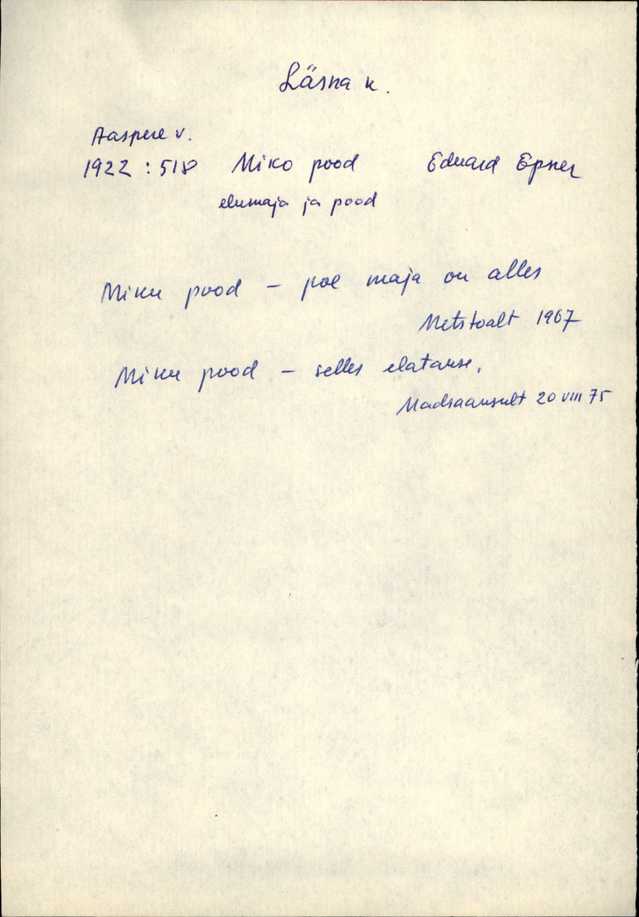 Läsna k.
Aaspere v.
1922 : 518 Miko pood Eduard Epner
elumaja ja pood
Miku pood – poe maja on alles
Metstoalt 1967
Miku pood – selles elatakse.
20 VIII 75